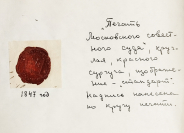 „Печать
Московского совест-
ного суда", круг-
лая, красного
сургуча, изображе-
ние - стандарт.
Надпись нанесена
по кругу печати.
1847 год